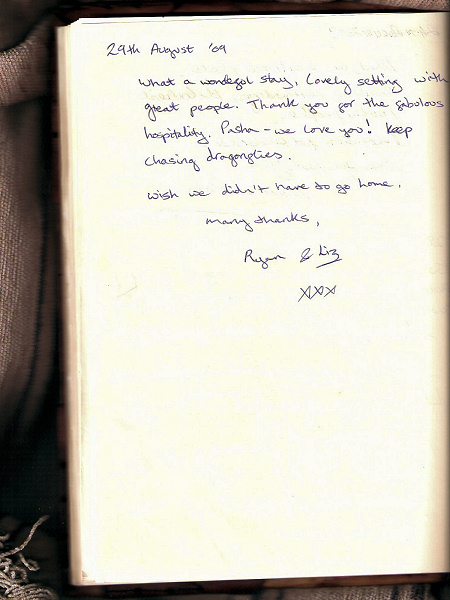 29th August '09
What a wonderful stay, Lovely setting with
great people. Thank you for the fabulous
hospitality. Pasha - we love you! Keep
chasing dragonflies.
wish we didn't have to go home.
many thanks,
Ryan & Liz
xxx